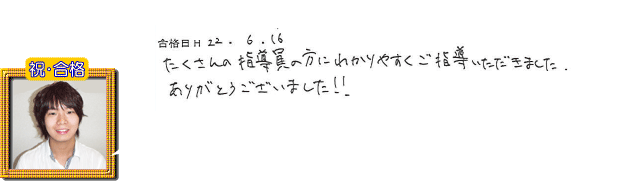 合格日 H 22. 6. 16
たくさんの指導員の方にわかりやすくご指導いただきました.
ありがとうございました!!
祝・合格